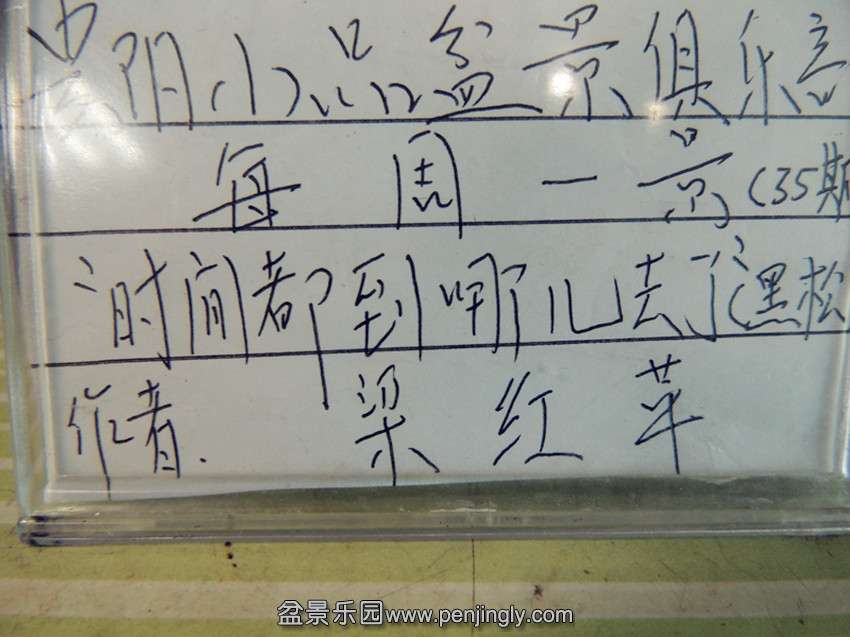 小品盆景俱乐
每周一景(35期
“时间都到哪儿去了”(黑松
作者. 梁红苹
盆景乐园www.penjingly.com